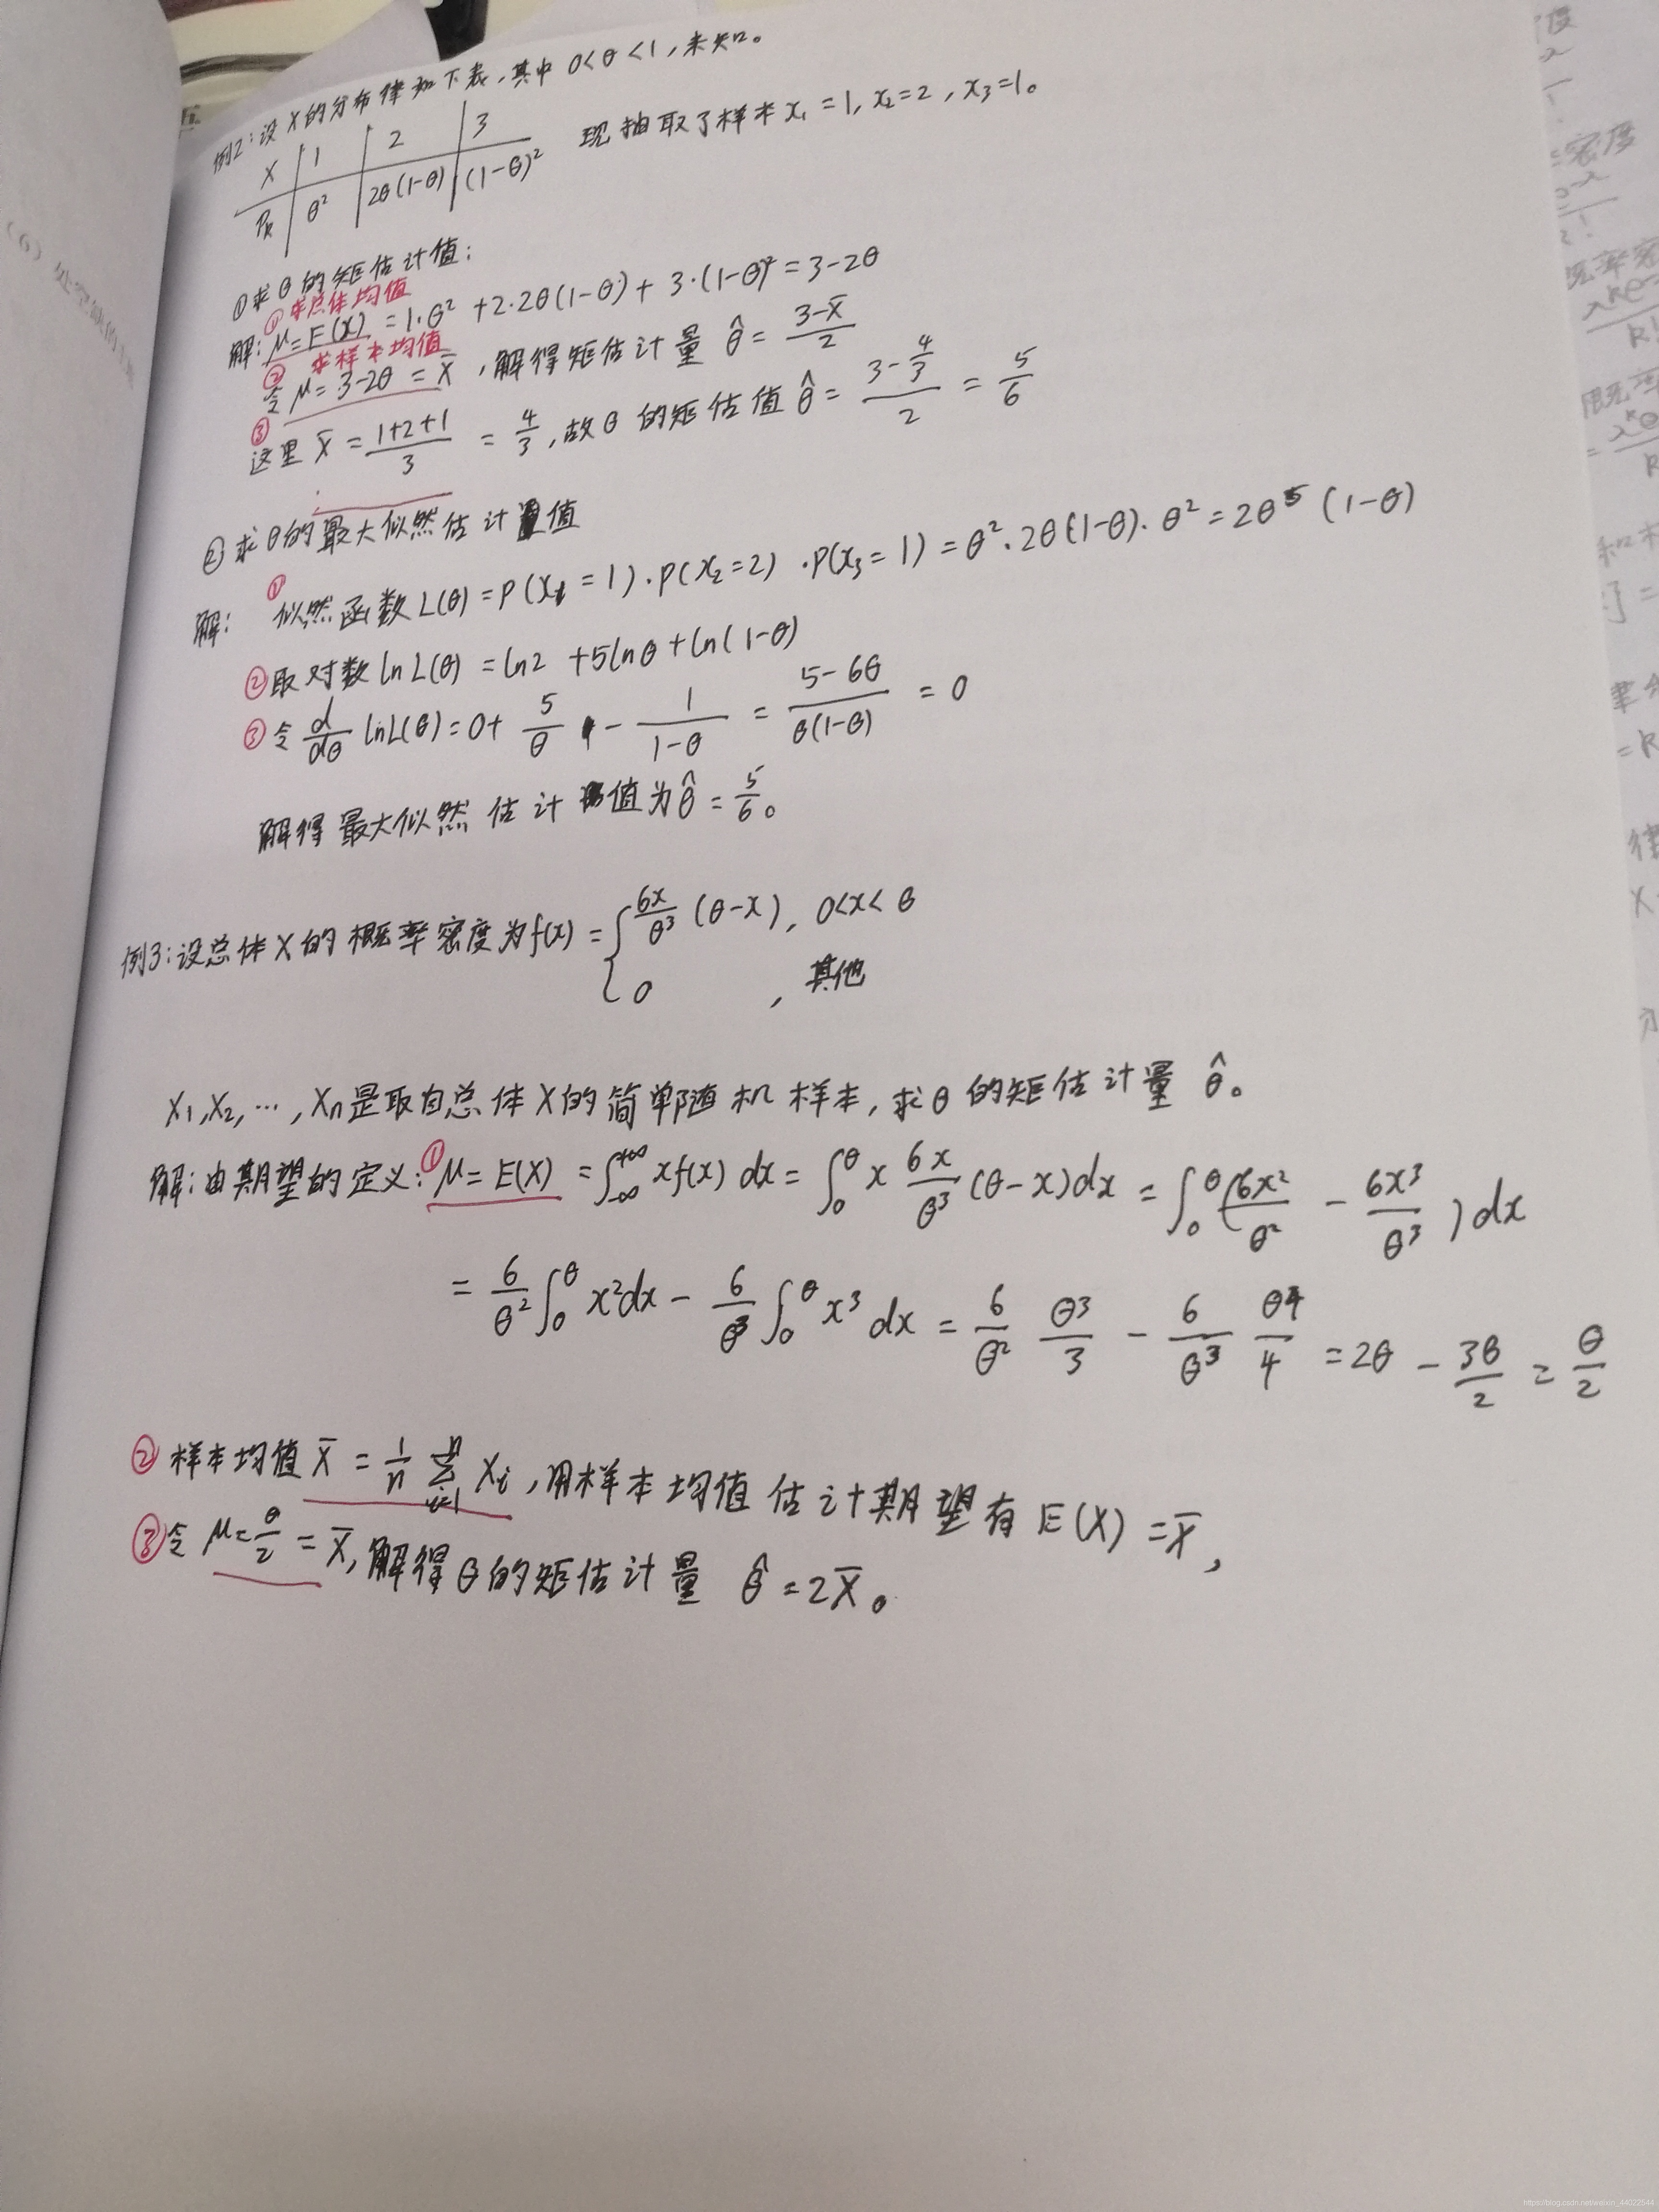 例2:设X的分布律如下表,其中0<θ<1,未知。
X | 1 | 2 | 3
Pk | θ² | 2θ(1-θ) | (1-θ)²
现抽取了样本x₁=1, x₂=2, x₃=1。
①求θ的矩估计值:
①求总体均值
解: μ=E(X) = 1·θ²+2·2θ(1-θ)+3·(1-θ)²=3-2θ
② 求样本均值
令 μ=3-2θ=X̄,解得矩估计量 θ̂=(3-X̄)/2
③
这里 X̄=(1+2+1)/3=4/3,故θ的矩估值 θ̂=(3-4/3)/2=5/6
②求θ的最大似然估计值
解: ①似然函数L(θ)=P(x₁=1)·P(x₂=2)·P(x₃=1)=θ²·2θ(1-θ)·θ²=2θ⁵(1-θ)
②取对数lnL(θ)=ln2+5lnθ+ln(1-θ)
③令 d/dθ lnL(θ)=0+5/θ-1/(1-θ)=(5-6θ)/(θ(1-θ))=0
解得最大似然估计值为θ̂=5/6。
例3:设总体X的概率密度为f(x)={6x/θ³(θ-x), 0<x<θ
0, 其他
X₁,X₂,…,Xn是取自总体X的简单随机样本,求θ的矩估计量 θ̂。
解:由期望的定义:①μ=E(X)=∫₋∞^{+∞}xf(x)dx=∫₀^θ x 6x/θ³(θ-x)dx=∫₀^θ(6x²/θ²-6x³/θ³)dx
=6/θ²∫₀^θx²dx-6/θ³∫₀^θx³dx=6/θ² θ³/3-6/θ³ θ⁴/4=2θ-3θ/2=θ/2
②样本均值X̄=1/n Σ_{i=1}^n Xi,用样本均值估计期望有E(X)=X̄,
③令μ=θ/2=X̄,解得θ的矩估计量 θ̂=2X̄。